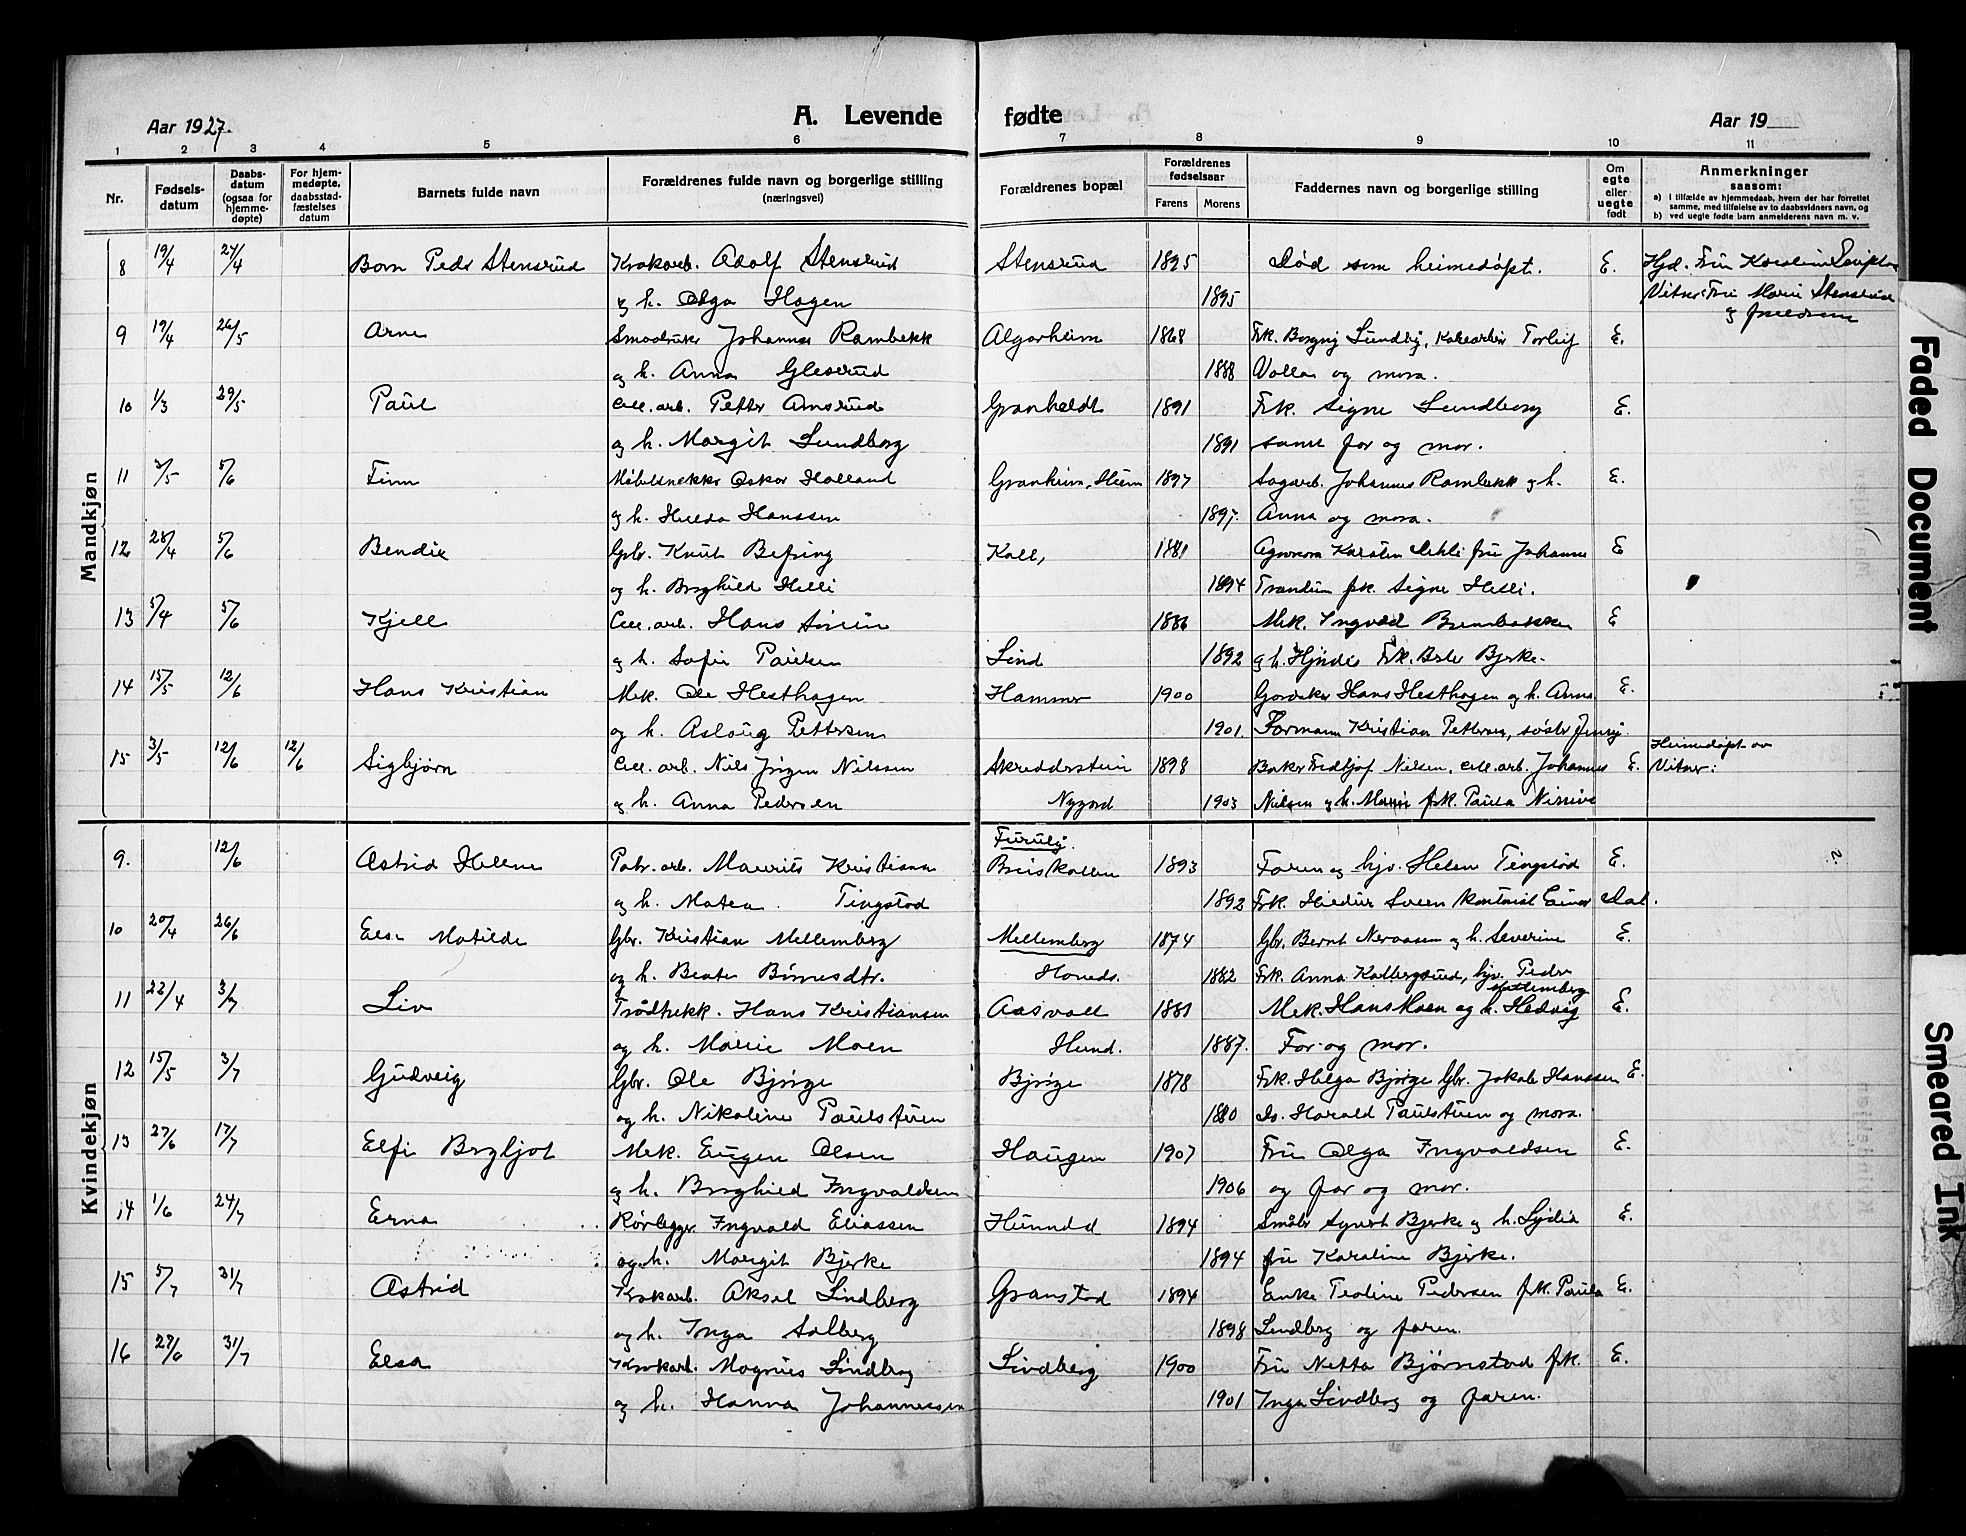 Aar 1927. A. Levende fødte Aar 19
1 2 3 4 5 6 7 8 9 10 11
Nr. Fødsels-datum Daabs-datum (ogsaa for hjemme-døpte) For hjem-medøpte, daabsstad-fæstelses datum Barnets fulde navn Forældrenes fulde navn og borgerlige stilling (næringsvei) Forældrenes bopæl Forældrenes fødselsaar Farens Morens Faddernes navn og borgerlige stilling Om egte eller uegte født Anmerkninger saasom:
a) i tilfælde av hjemmedaab, hvem der har forrettet samme, med tilføielse av to daabsvidners navn, og
b) ved uegte fødte barn anmelderens navn m. v.
Mandkjøn
8 19/4 24/4 Peder Stensrud Krakarb. Adolf Stensrud Stensrud 1895 Død som heimedøpt. E. Hjd. Fru
og h. Olga Hagen 1895 Vitner: Fru Marie Stensrud
og
9 19/4 26/5 Arne Johannes Rambekk Algarheim 1868 Frk. Borgny Lundby, Torleif E.
og h. Anna Glesrud 1888 Volla og mora.
10 1/3 29/5 Paul Cell. arb. Petter Amsrud Granheldt 1891 Frk. Signe Lundborg E.
og h. Margit Lundborg 1891 samt far og mor.
11 2/5 5/6 Finn Møbelsnekker Oskar Holland Granheim, 1897 Sagarb. Johannes Rambekk og h. E.
og h. Hilda Hanssen 1897. Anna og mora.
12 28/4 5/6 Bendix Gbr. Knut Befring Koll, 1881 Karsten fru Johanne E
og h. Borghild Helli 1894 Trandum frk. Signe Helli.
13 5/4 5/6 Kjell Cell. arb. Hans 1886 Mek. Ingvald E
og h. Sofie Paulsen Lind 1892 og h. Frk. Bjerke.
14 15/5 12/6 Hans Kristian Mek. Ole Hesthagen Hammer 1900 Hans Hesthagen og h. Anna E.
og h. Aslaug Pettersen 1901. Formann Kristian Pettersen, søster Jenny.
15 3/5 12/6 12/6 Sigbjørn Cell. arb. Nils Jørgen Nilssen Skredderstuen 1898 Baker Fridtjof Nielsen, cell. arb. Johannes E. Heimedøpt av
Vitner:
og h. Anna Pedersen Nygard 1903 Nielsen og h. Marie frk. Paula
Kvindekjøn
Furuly.
9. 12/6 Astrid Helene Fabr. arb. Maurits Kristiansen Briskollen 1893 Faren og hjv. Helen Tingstad E.
og h. Matea Tingstad 1892 Frk. Sveen Kontorist Einar Dal.
10 20/4 26/6 Else Matilde Gbr. Kristian Mellemberg Mellemberg 1874 Gbr. Bernt og h. Severine E.
og h. Beate Hunds. 1882 Frk. Anna hjv. Peder
Mellemberg
11 22/4 3/7 Liv Trådtrekk. Hans Kristiansen Aasvoll 1881 Mek. Hans Moen og h. Hedvig E.
og h. Marie Moen Hund. 1887. Far og mor.
12 15/5 3/7 Gudveig Gbr. Ole Bjørge Bjørge 1878 Frk. Helga Bjørge Gbr. Jakob Hanssen E.
og h. Nikoline Paulstuen 1880 Harald Paulstuen og mora.
13 27/6 17/7 Elfi Bergljot Mek. Eugen Olsen Haugen 1907 Fru Olga Ingvaldsen E.
og h. Borghild Ingvaldsen 1906 og far og mor.
14 1/6 24/7 Erna Rørlegger Ingvald Eliassen Hunndal 1894 Småbr Syvert Bjerke og h. Lydia E.
og h. Margit Bjerke 1894 fru Karoline Bjerke.
15 5/7 31/7 Astrid Krakarb. Aksel Lindberg Granstad 1894 Enke Teoline Pedersen frk. Paula E.
og h. Inga Solberg 1898 Lindberg og faren.
16 27/6 31/7 Elsa Krakarb. Magnus Lindberg Lindberg 1900 Fru Netta Bjørnstad frk. E.
og h. Hanna Johannessen 1901 Inga Lindberg og faren.
Faded Document
Smeared Ink